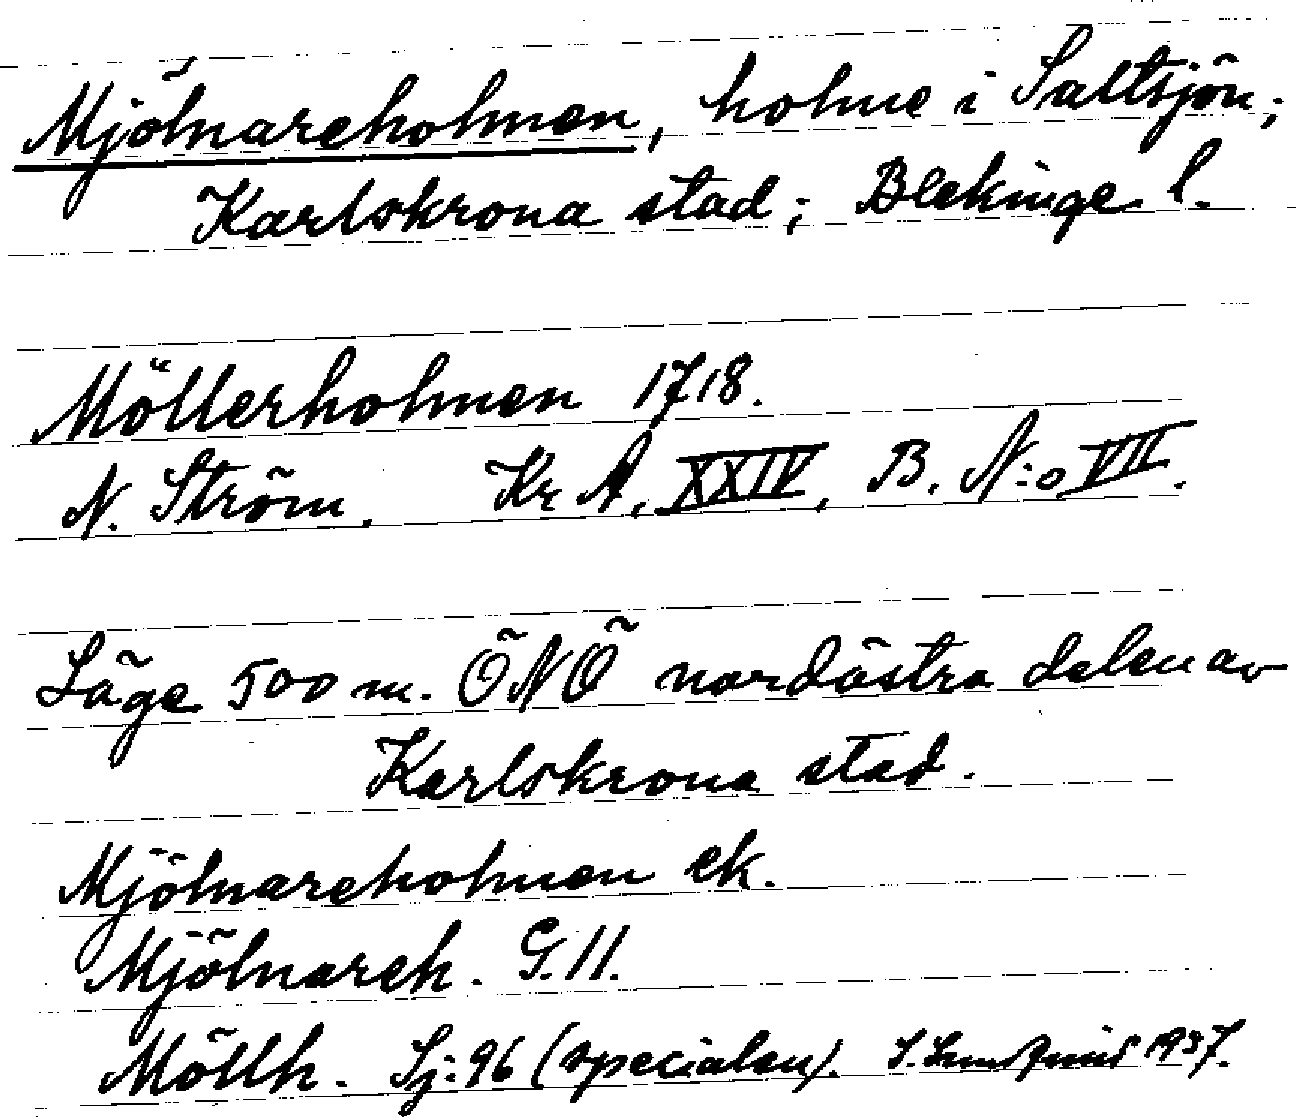 Mjölnareholmen, holme i Saltsjön;
Karlskrona stad; Blekinge l.
Möllerholmen 1718.
N. Ström. Kr A, XXIV, B. N:o VII.
Läge 500 m. ÖNÖ nordöstra delen av
Karlskrona stad.
Mjölnareholmen ek.
Mjölnareh. G. 11.
Möllh. Sj: 96 (specialen). 1937.